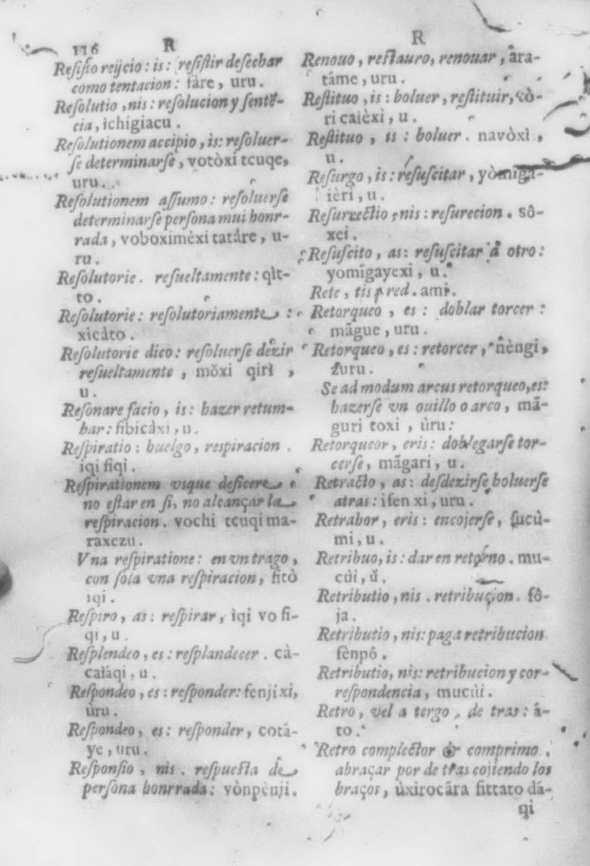 116 R
Resisto reijcio: is: resistir desechar
como tentacion: fàre, uru.
Resolutio, nis: resolucion y senten-
cia, ichigiacu.
Resolutionem accipio, is: resoluer-
se determinarse, votòxi tcuqe,
uru.
Resolutionem assumo: resoluerse
determinarse persona mui honr-
rada, voboximèxi tatáre, u-
ru.
Resolutorie. resueltamente: qit-
to.
Resolutorie: resolutoriamente:
xicàto.
Resolutorie dico: resoluerse dezir
resueltamente, mŏxi qiri,
u.
Resonare facio, is: hazer retum-
bar: fibicàxi, u.
Respiratio: huelgo, respiracion.
iqi fiqi.
Respirationem vique deficere
no estar en si, no alcançar la
respiracion. vochi tcuqi ma-
raxezu.
Vna respiratione: en vn trago,
con sola vna respiracion, fitò
iqi.
Respiro, as: respirar, ìqi vo fi-
qi, u.
Resplendeo, es: resplandecer. cà-
caiàqi, u.
Respondeo, es: responder: fenji xi,
uru.
Respondeo, es: responder, cotà-
ye, uru.
Responsio, nis. respuesta de
persona honrrada: vònpènji.
R
Renouo, restauro, renouar, âra-
tàme, uru.
Restituo, is: boluer, restituir, vò-
ri caièxi, u.
Restituo, is: boluer. navòxi,
u.
Resurgo, is: resuscitar, yòmigà-
ièri, u.
Resurrectio, nis: resurecion. sô-
xei.
Resuscito, as: resuscitar à otro:
yomigayexi, u.
Rete, tis red. ami.
Retorqueo, es: doblar torcer:
māgue, uru.
Retorqueo, es: retorcer, nèngi,
zuru.
Se ad modum arcus retorqueo, es:
hazerse vn ouillo o arco, mā-
guri toxi, ùru:
Retorqueor, eris: doblegarse tor-
cerse, māgari, u.
Retracto, as: desdezirse boluerse
atras: ifen xi, uru.
Retrahor, eris: encojerse, sucù-
mi, u.
Retribuo, is: dar en retorno. mu-
cúi, ù.
Retributio, nis. retribuçion. fô-
ja.
Retributio, nis: paga retribucion
fènpô.
Retributio, nis: retribucion y cor-
respondencia, mucúi.
Retro, vel a tergo, de tras: â-
to.
Retro complector & comprimo.
abraçar por de tras cojiendo los
braços, ùxirocâra fittato dā-
qi